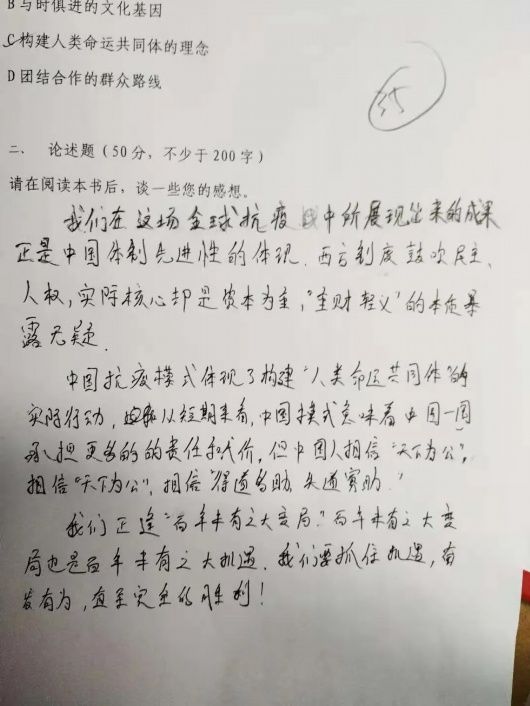 B 与时俱进的文化基因
C 构建人类命运共同体的理念
D 团结合作的群众路线
35
二、 论述题（50 分，不少于 200 字）
请在阅读本书后，谈一些您的感想。
我们在这场全球抗疫中所展现出来的成果
正是中国体制先进性的体现. 西方制度鼓吹民主、
人权, 实际核心却是资本为主, "重财轻义"的本质暴
露无疑.
中国抗疫模式体现了构建"人类命运共同体"的
实际行动, 从短期来看, 中国模式意味着中国一国
承担更多的的责任和代价, 但中国人相信"天下为公",
相信"天下为公", 相信"得道多助, 失道寡助."
我们正逢"百年未有之大变局." 百年未有之大变
局也是百年未有之大机遇. 我们要抓住机遇, 奋
发有为, 直至完全的胜利!